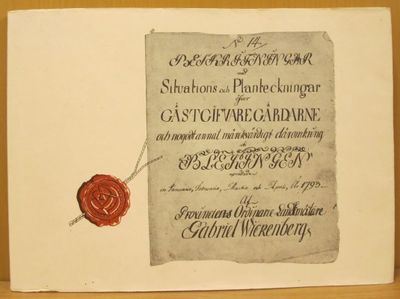 N 14.
BESKRIFNINGAR
med
Situations och Planteckningar
öfver
GÄSTGIFVAREGÅRDARNE
och något annat märkvärdigt däromkring
i
BLEKINGEN
uprättade
in Januario, Februario, Martii och Aprili, År 1793.
Af
Provincens Ordinarie Landtmätare
Gabriel Wickenberg